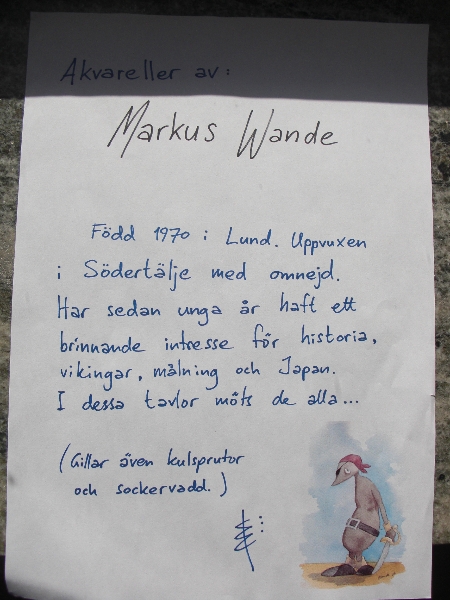 Akvareller av:
Markus Wande
Född 1970 i Lund. Uppvuxen
i Södertälje med omnejd.
Har sedan unga år haft ett
brinnande intresse för historia,
vikingar, målning och Japan.
I dessa tavlor möts de alla...
(Gillar även kulsprutor
och sockervadd.)